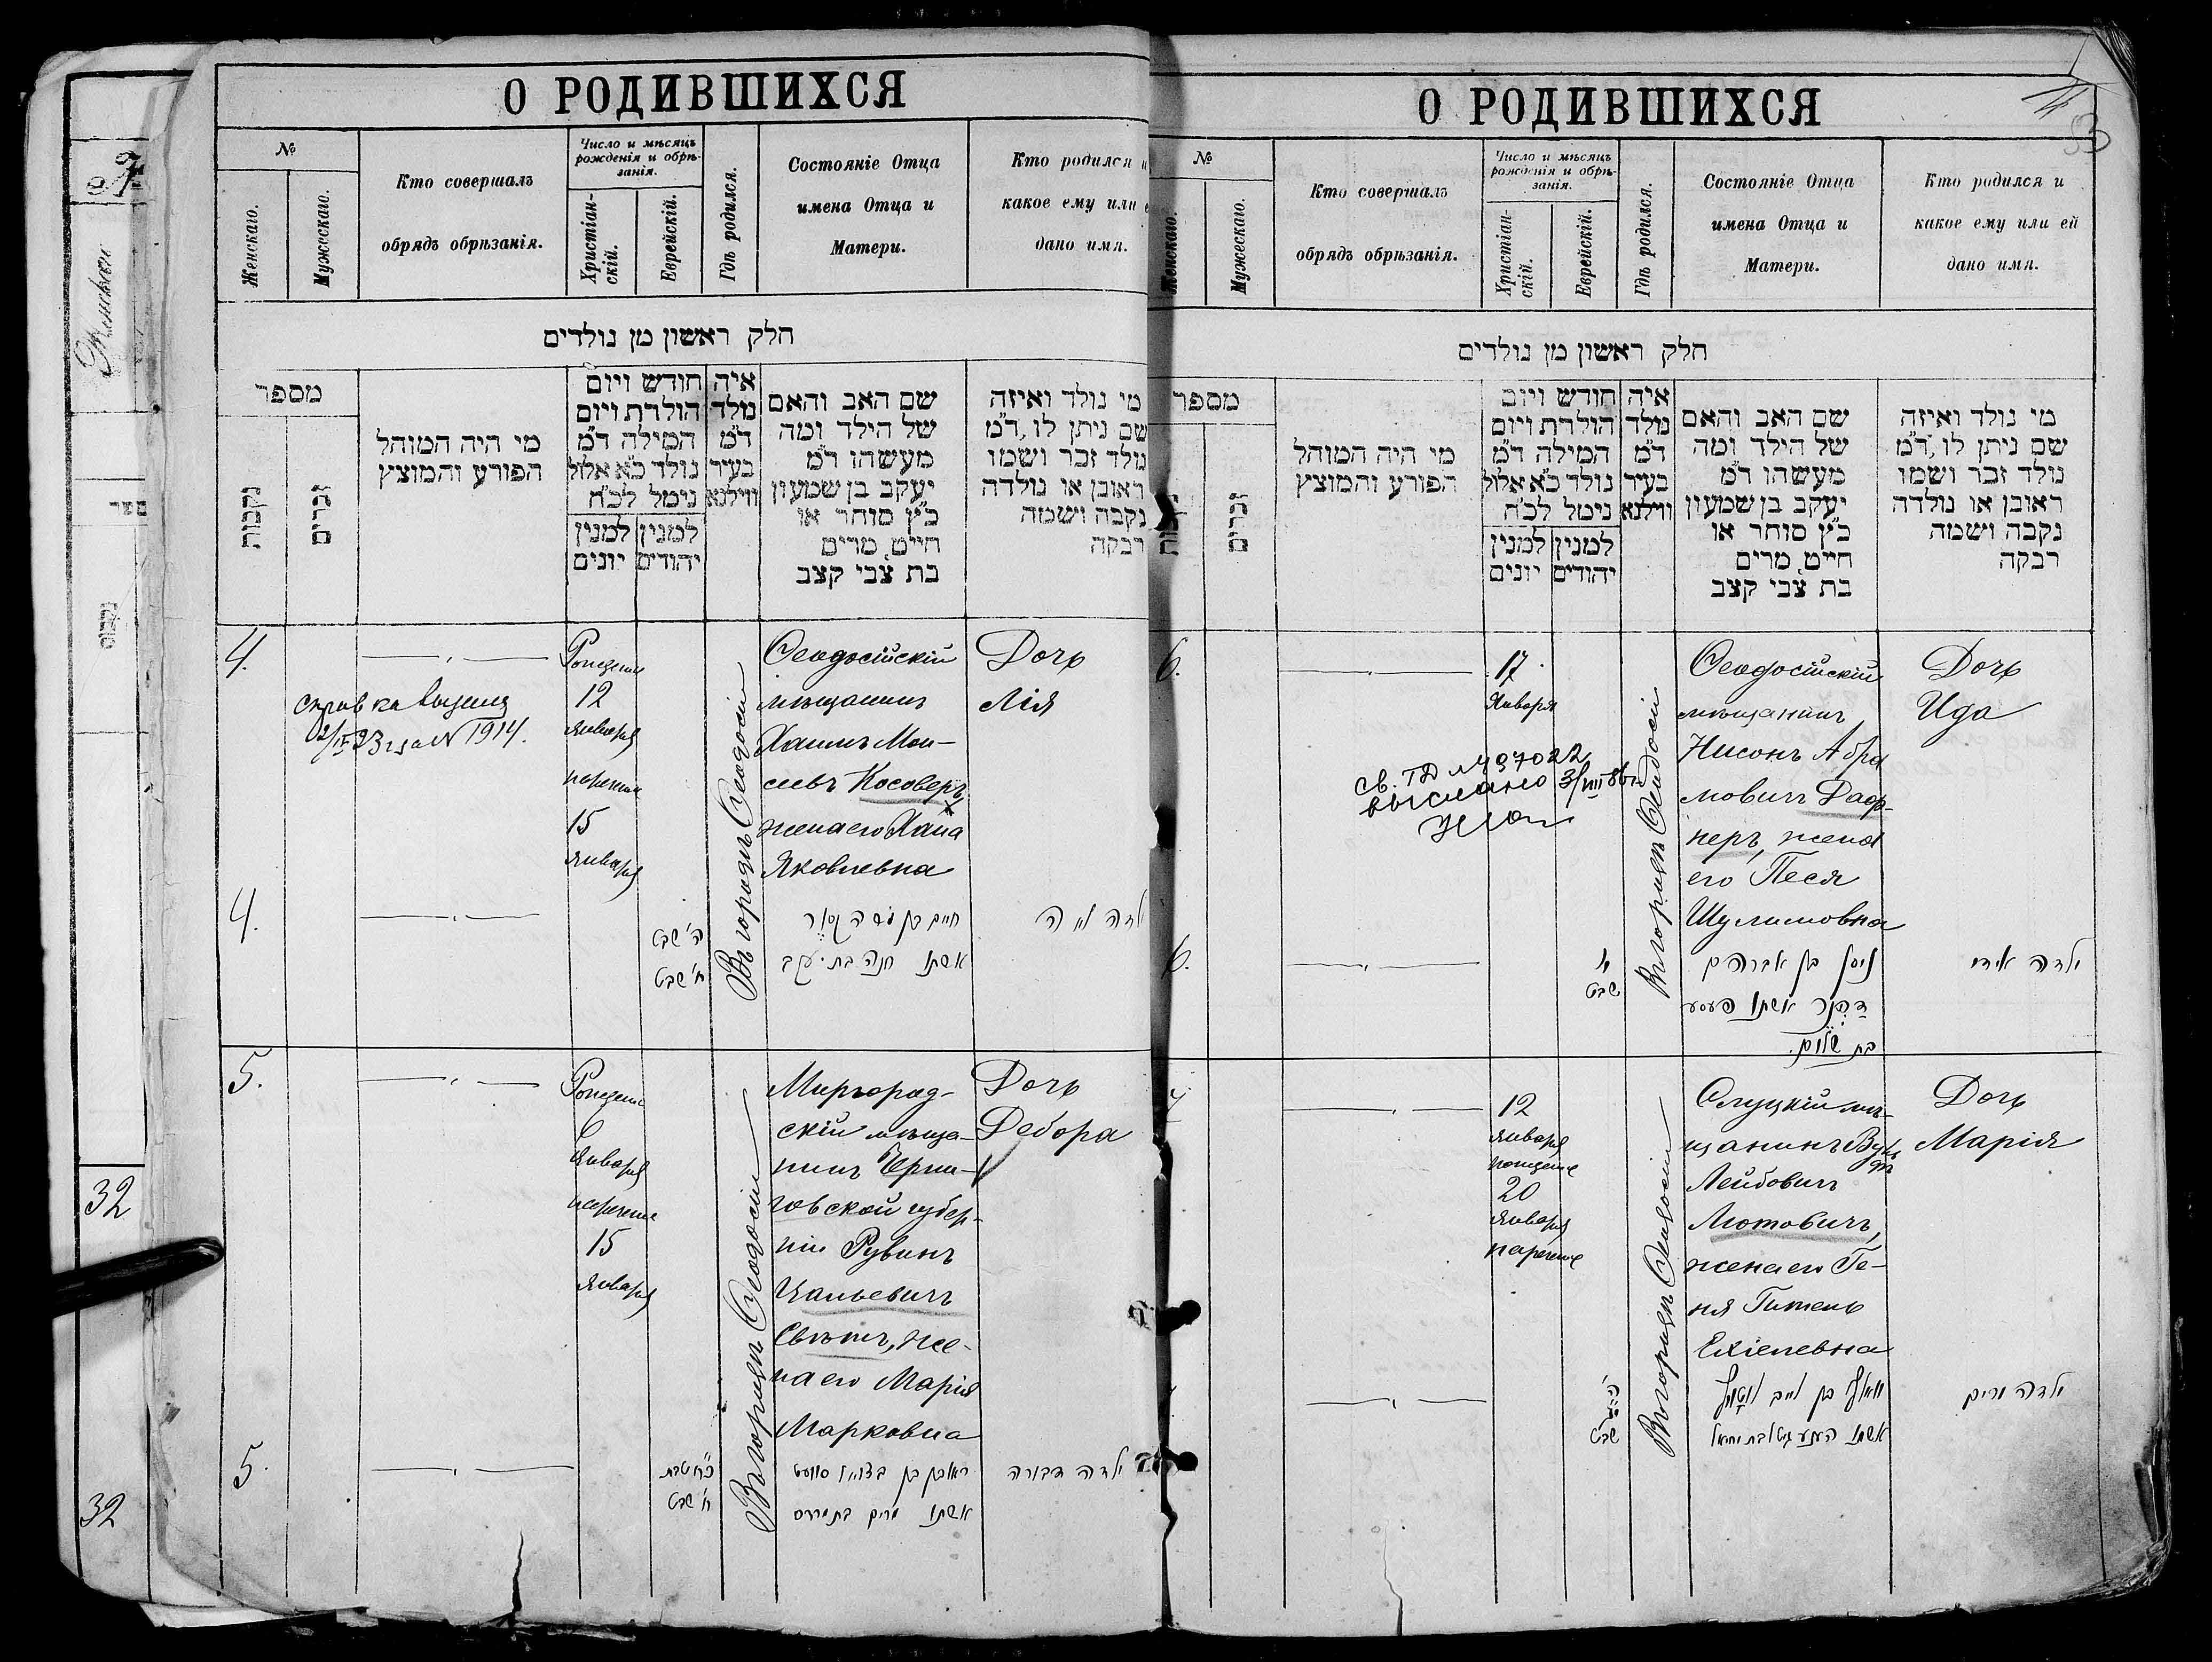 О РОДИВШИХСЯ
№
Женскаго.
Мужескаго.
Кто совершалъ
обрядъ обрѣзанія.
Число и мѣсяцъ
рожденія и обрѣ-
занія.
Христіан-
скій.
Еврейскій.
Гдѣ родился.
Состояніе Отца
имена Отца и
Матери.
Кто родился и
какое ему или
дано имя.
חלק ראשון מן נולדים
מספר
נקבות
זכרים
מי היה המוהל
הפורע והמוצץ
חודש ויום
הולדת ויום
המילה ד״מ
נולד כ״א אלול
נימל לכ״ח
למנין
יהודים
למנין
יונים
איה
נולד
ד״מ
בעיר
ווילנא
שם האב והאם
של הילד ומה
מעשהו ד״מ
יעקב בן שמעון
כ״ץ סוחר או
חייט, מרים
בת צבי קצב
מי נולד ואיזה
שם ניתן לו, ד״מ
נולד זכר ושמו
ראובן או נולדה
נקבה ושמה
רבקה
4.
справка выдана
1914.
Рожденіе
12
Января
нареченіе
15
Января
Въ городѣ Ѳеодосіи
Ѳеодосійскій
мѣщанинъ
Хаимъ Мои-
сеевъ Косоверъ,
жена его Хана
Яковлевна
Дочь
Лія
4.
ה׳ שבט
ח׳ שבט
חיים בן משה
אשתו חנה בת יעקב
ילדה לאה
5.
Рожденіе
6
Января
нареченіе
15
Января
Въ городѣ Ѳеодосіи
Миргород-
скій мѣща-
нинъ Черни-
говской губер-
ніи Рувинъ
Цальевичъ
жена его Марія
Марковна
Дочь
Дебора
5.
כ״ח טבת
ח׳ שבט
ראובן בן
אשתו מרים
ילדה דבורה
32
32
О РОДИВШИХСЯ
№
Женскаго.
Мужескаго.
Кто совершалъ
обрядъ обрѣзанія.
Число и мѣсяцъ
рожденія и обрѣ-
занія.
Христіан-
скій.
Еврейскій.
Гдѣ родился.
Состояніе Отца
имена Отца и
Матери.
Кто родился и
какое ему или ей
дано имя.
חלק ראשון מן נולדים
מספר
זכרים
מי היה המוהל
הפורע והמוצץ
חודש ויום
הולדת ויום
המילה ד״מ
נולד כ״א אלול
נימל לכ״ח
למנין
יהודים
למנין
יונים
איה
נולד
ד״מ
בעיר
ווילנא
שם האב והאם
של הילד ומה
מעשהו ד״מ
יעקב בן שמעון
כ״ץ סוחר או
חייט, מרים
בת צבי קצב
מי נולד ואיזה
שם ניתן לו, ד״מ
נולד זכר ושמו
ראובן או נולדה
נקבה ושמה
רבקה
6.
выслано
17
Января
Въ городѣ Ѳеодосіи
Ѳеодосійскій
мѣщанинъ
Нисонъ Абра
мовичъ Даф-
неръ, жена
его Песя
Шулимовна
Дочь
Ида
6.
שבט
ניסן בן אברהם
דפנר אשתו פעסע
בת שלום
ילדה אידי
12
Января
рожденіе
20
Января
нареченіе
Въ городѣ Ѳеодосіи
Слуцкій мѣ-
щанинъ
Лейбовичъ
Лютовичъ,
жена его Ге-
ня Гитель
Ехіелевна
Дочь
Марія
שבט
בן לייב
אשתו העניע גיטל בת יחיאל
ילדה מרים